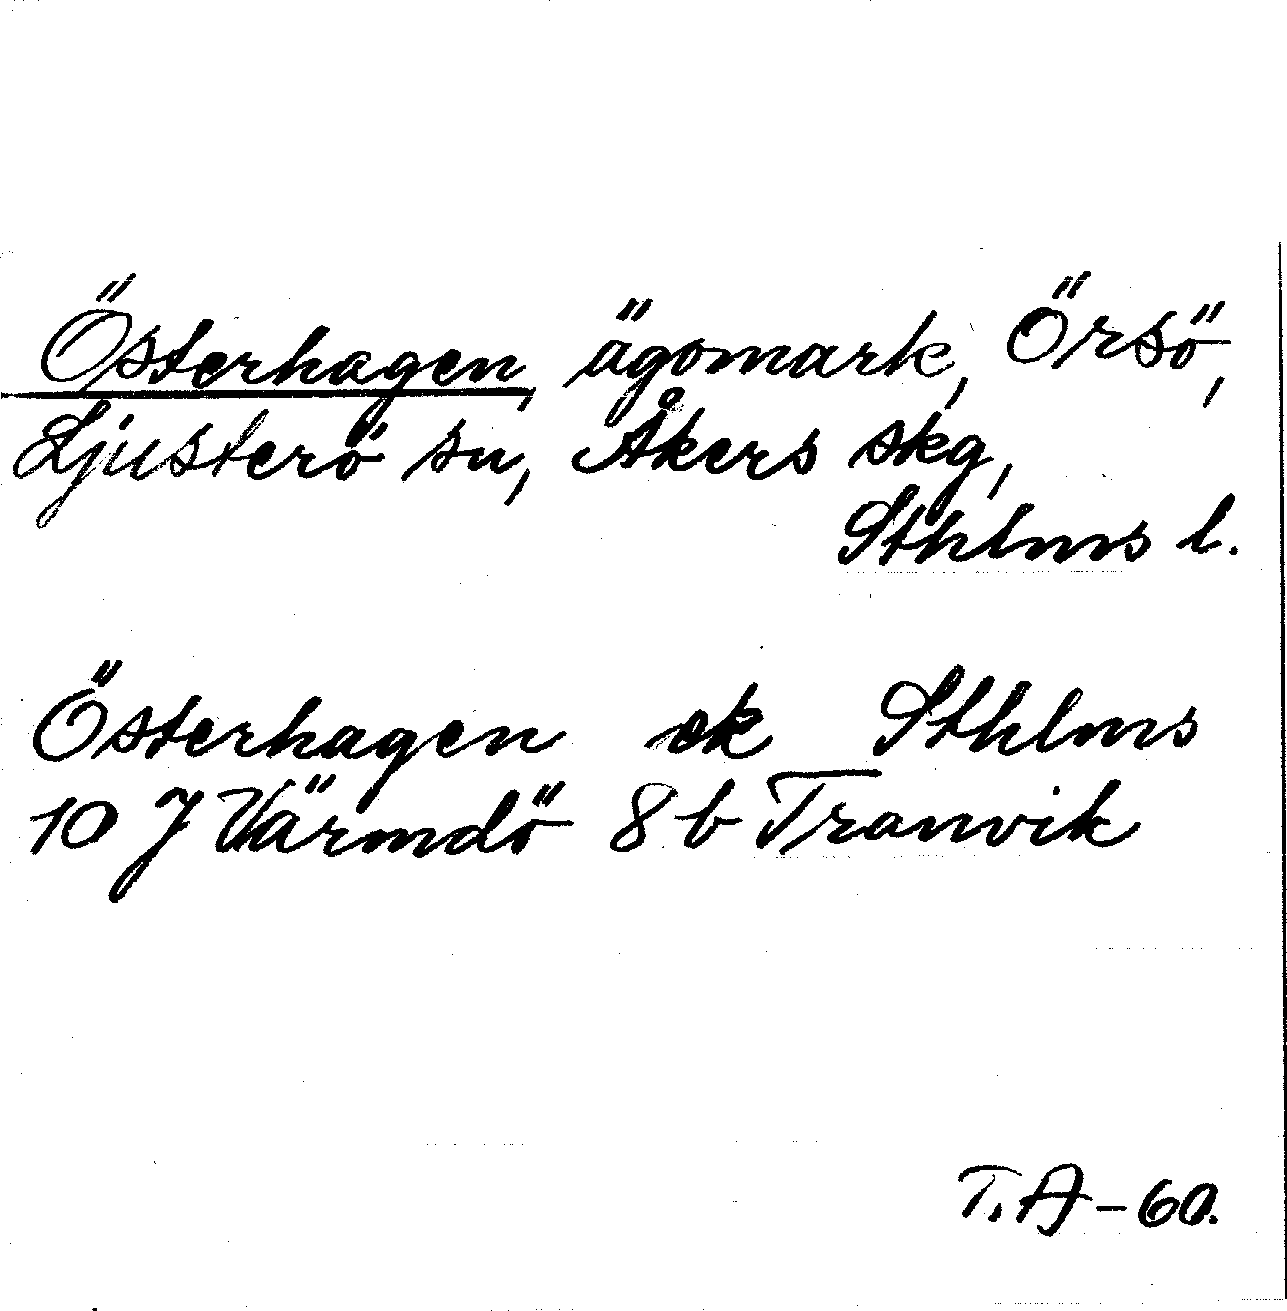 Österhagen, ägomark, Örsö,
Ljusterö sn, Åkers skg,
Sthlms l.
Österhagen ek Sthlms
10 J Värmdö 8 b Tranvik
T.A-60.